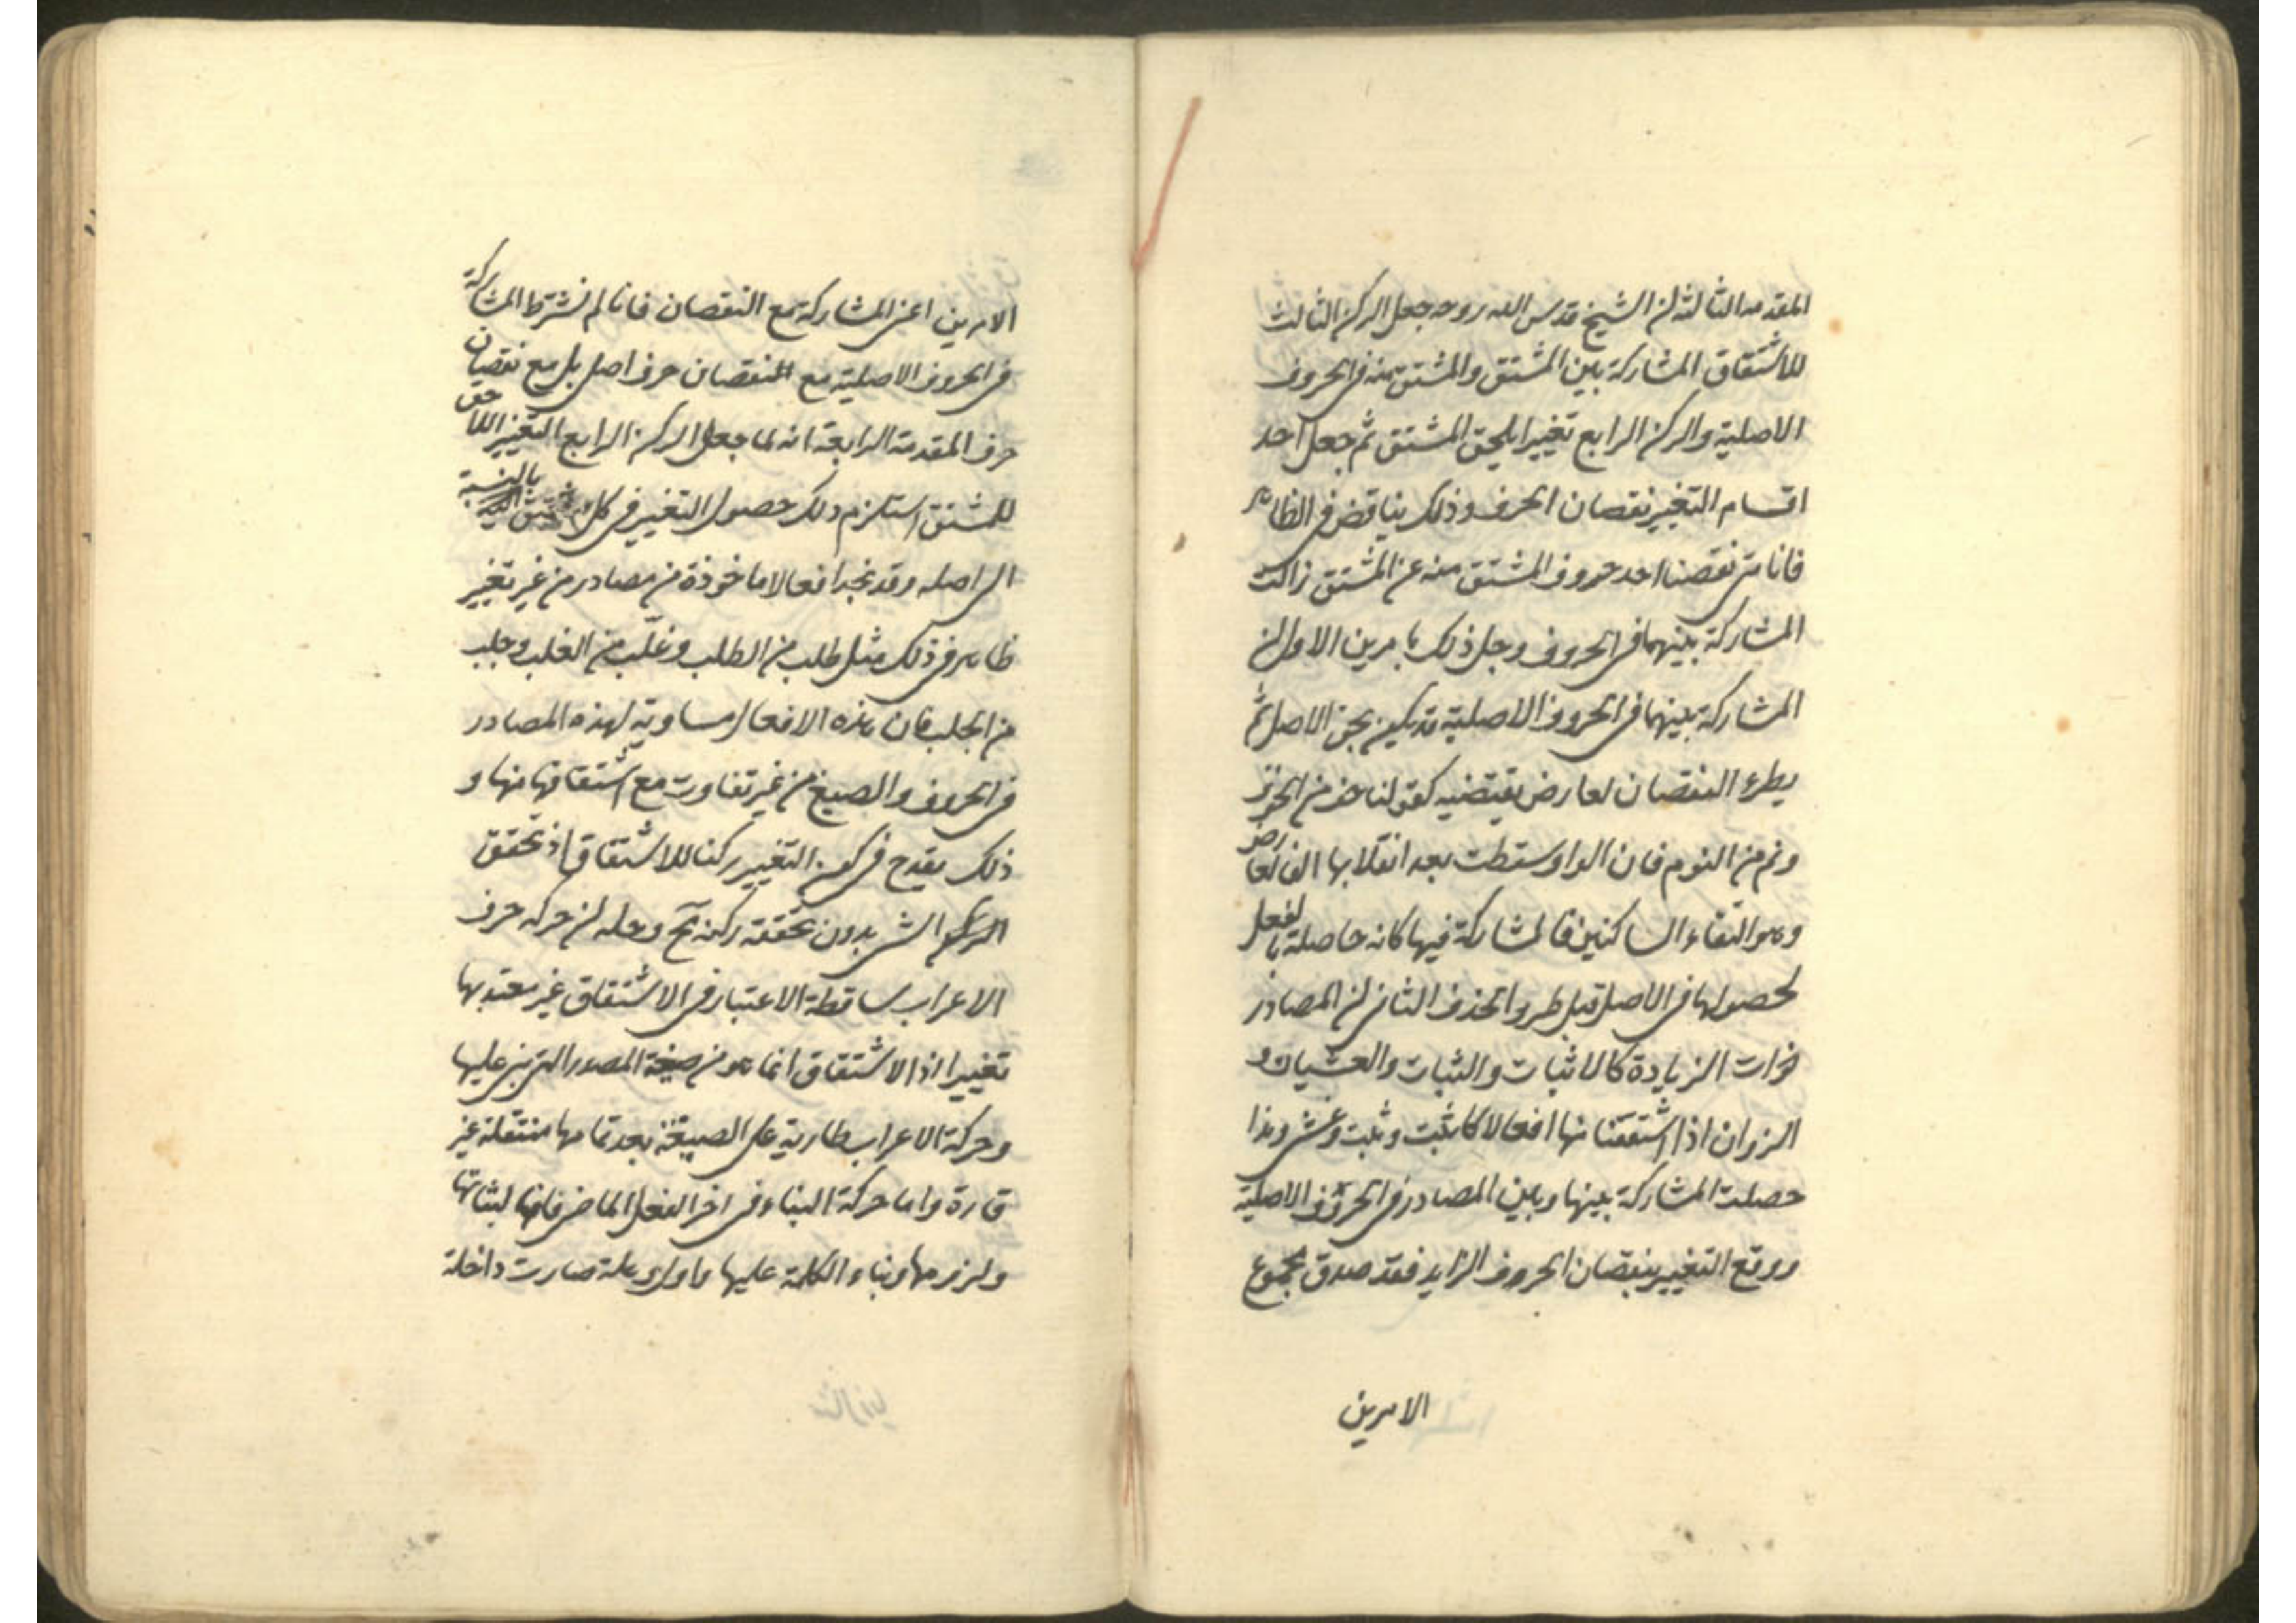 المقدمه الثالثة ان الشيخ قدس الله روحه جعل الركن الثالث
للاشتقاق المشاركة بين المشتق والمشتق منه فى الحروف
الاصلية والركن الرابع تغييرا يلحق المشتق ثم جعل احد
اقسام التغيير نقصان الحرف وذلك يناقض فى الظاهر
فانا متى نقصنا احد حروف المشتق منه عن المشتق زالت
المشاركة بينهما فى الحروف وحل ذلك بامرين الاول ان
المشاركة بينهما فى الحروف الاصلية قد يكون بحق الاصل ثم
يطرء النقصان لعارض يقتضيه كقولنا خف من الخوف
ونم من النوم فان الواو سقطت بعد انقلابها الفا لعارض
وهو التقاء الساكنين فالمشاركة فيها كانه حاصلة بالفعل
لحصولها فى الاصل قبل طرو الحذف الثانى ان المصادر
ذوات الزيادة كالاثبات والثبات والغشيان و
النزوان اذا اشتققنا منها افعالا كاثبت وثبت وغش ونزا
حصلت المشاركة بينها وبين المصادر فى الحروف الاصلية
ووقع التغيير بنقصان الحروف الزايد فقد صدق مجموع
الامرين
الامرين اعنى المشاركة مع النقصان فانا لم نشترط المشاركة
فى الحروف الاصلية مع النقصان حرف اصلى بل مع نقصان
حرف المقدمة الرابعة انه لما جعل الركن الرابع التغيير اللاحق
للمشتق استلزم ذلك حصول التغيير فى كل مشتق بالنسبة
الى اصله وقد نجد افعالا ماخوذة من مصادر من غير تغيير
ظاهر فى ذلك مثل طلب من الطلب وغلب من الغلب وجلب
من الجلب فان هذه الافعال مساوية لهذه المصادر
فى الحروف والصيغ من غير تفاوت مع اشتقاقها منها و
ذلك يقدح فى كون التغيير ركنا للاشتقاق اذ تحقق
الشى بدون تحققه ركنه مح وحله ان حركه حرف
الاعراب ساقطة الاعتبار فى الاشتقاق غير معتد بها
تغييرا اذ الاشتقاق انما هو من صيغة المصدر التى بنى عليها
وحركة الاعراب طارية على الصيغة بعد تمامها منتقلة غير
قارة واما حركة البناء فى اخر الفعل الماضى فانها لثباتها
ولزومها وبناء الكلمة عليها صارت داخلة